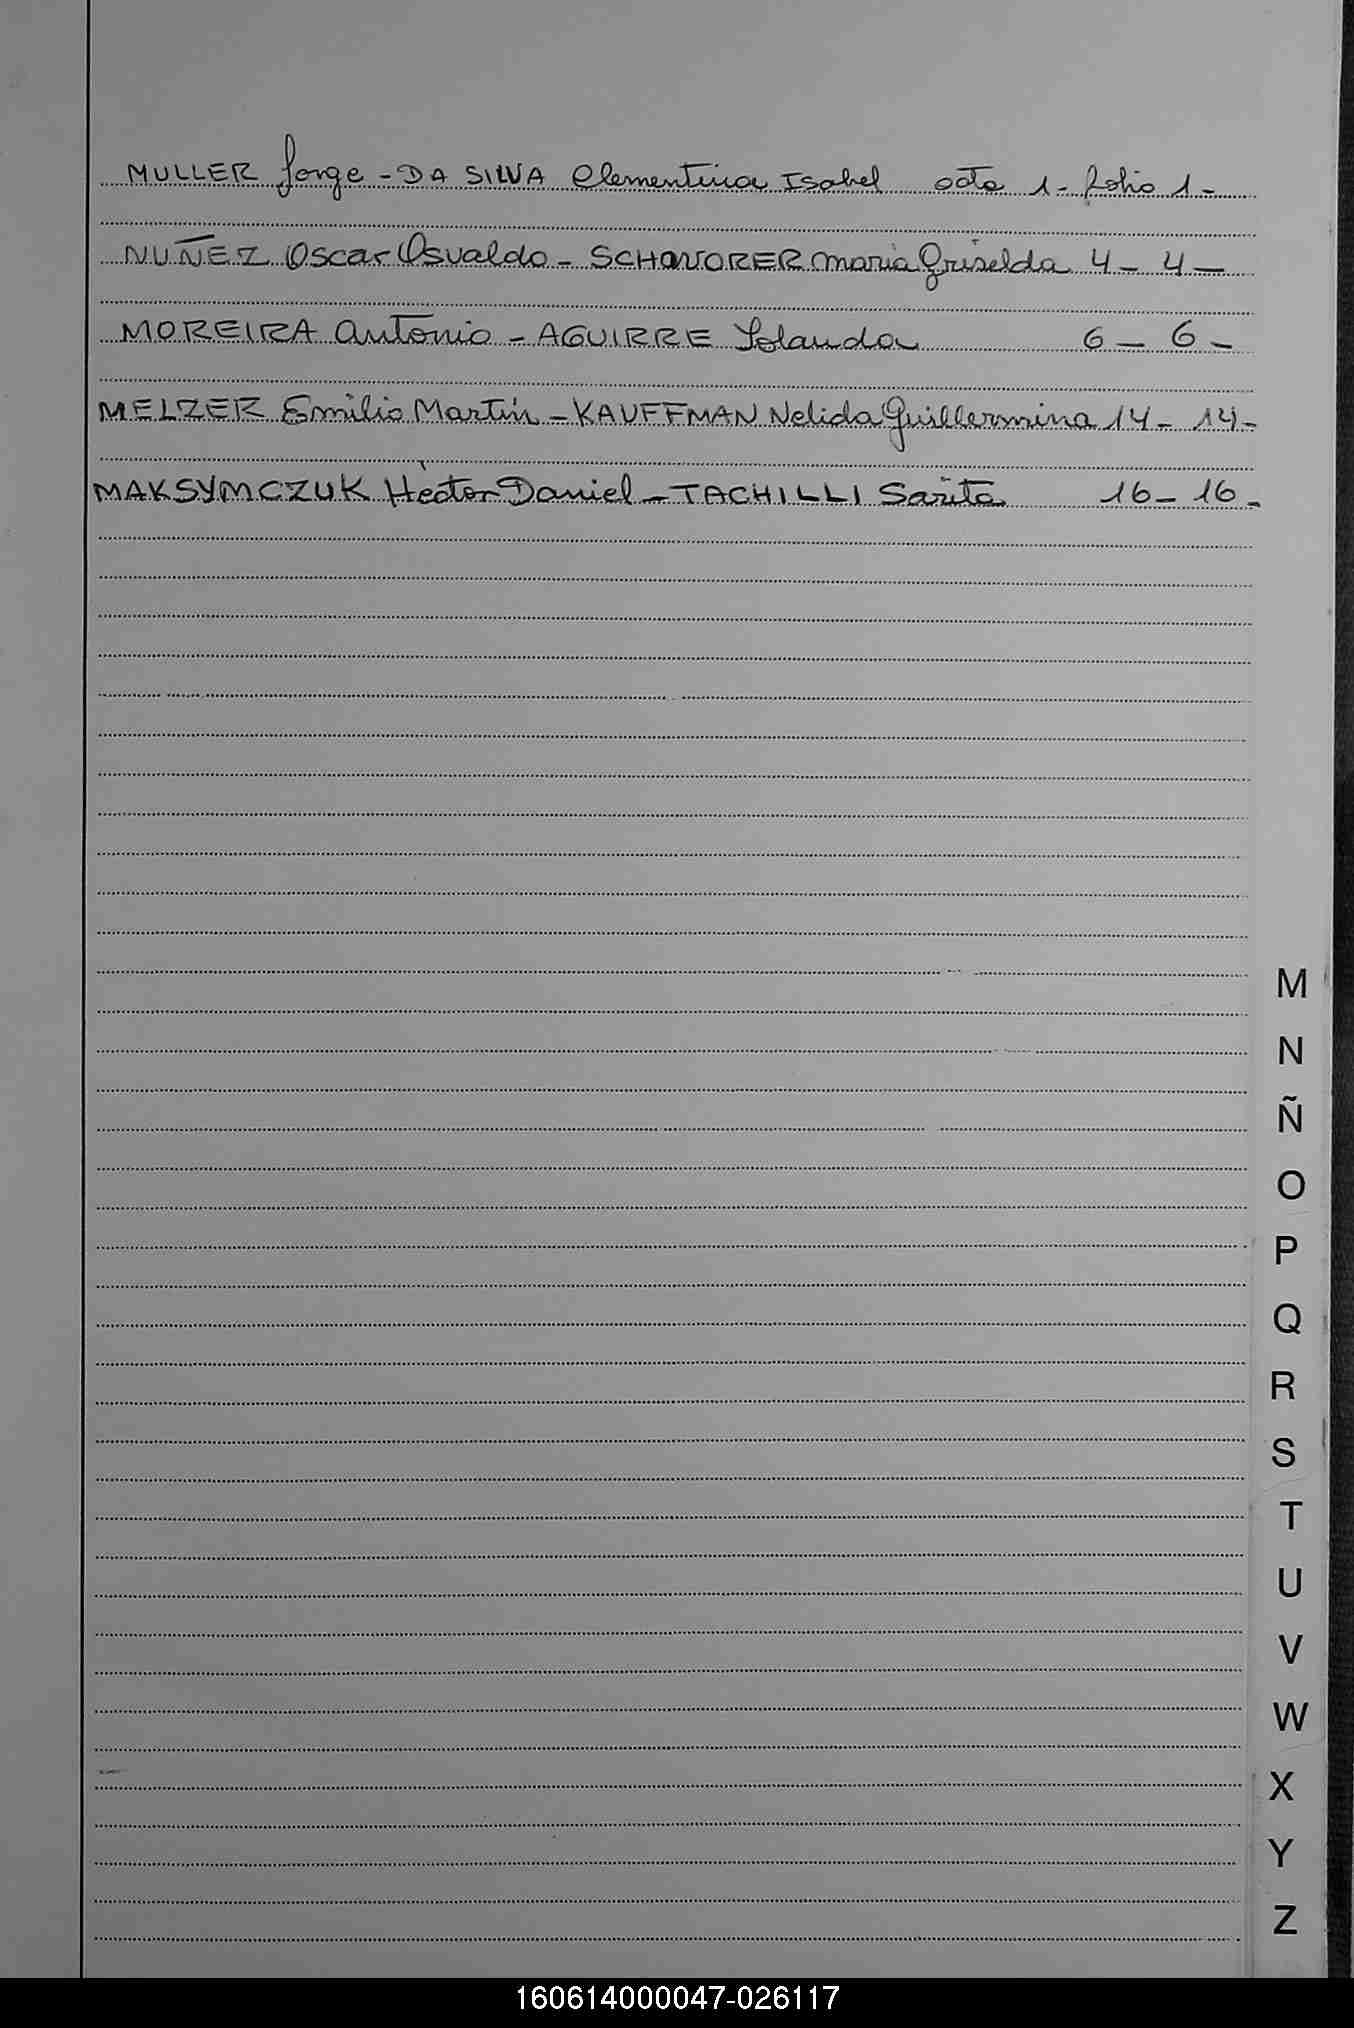 MULLER Jorge - DA SILVA Clementina Isabel acta 1 - folio 1 -
NUÑEZ Oscar Osvaldo - SCHAVORER Maria Griselda 4 - 4 -
MOREIRA Antonio - AGUIRRE Yolanda 6 - 6 -
MELZER Emilio Martín - KAUFFMAN Nelida Guillermina 14 - 14 -
MAKSYMCZUK Héctor Daniel - TACHILLI Sarita 16 - 16 -
M
N
Ñ
O
P
Q
R
S
T
U
V
W
X
Y
Z
160614000047-026117